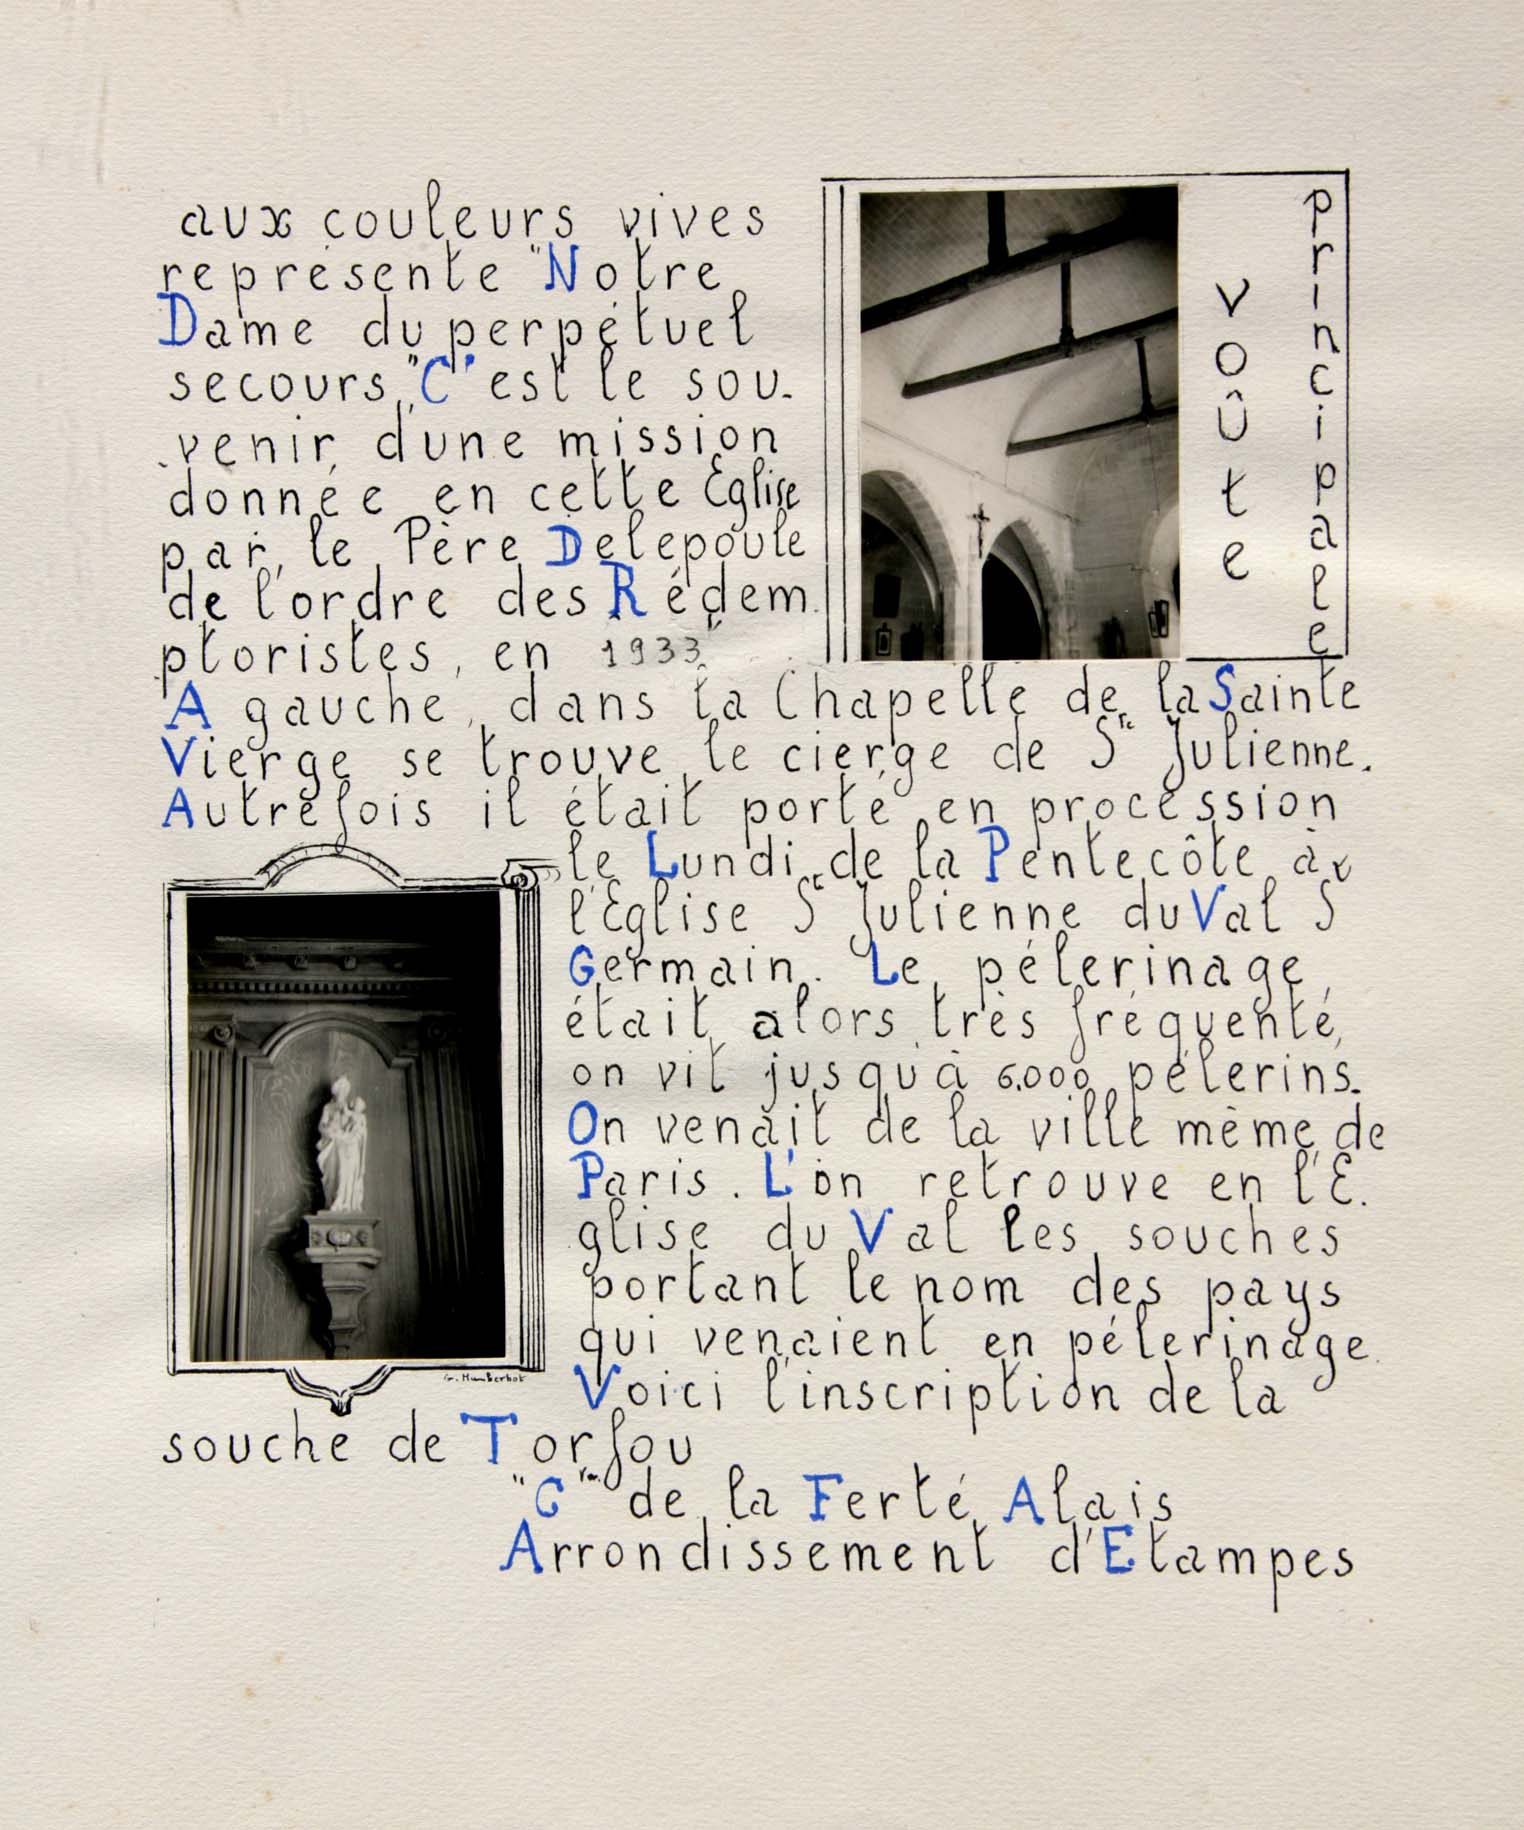 aux couleurs vives
représente "Notre
Dame du perpétuel
secours". C'est le sou-
venir d'une mission
donnée en cette Eglise
par le Père Delepoule
de l'ordre des Rédem
ptoristes, en 1933"
voûte
principale
A gauche, dans la Chapelle de la Sainte
Vierge se trouve le cierge de Ste Julienne.
Autrefois il était porté en procession
le Lundi de la Pentecôte à
l'Eglise Ste Julienne du Val St
Germain. Le pélerinage
était alors très fréquenté,
on vit jusqu'à 6.000 pélerins.
On venait de la ville même de
Paris. L'on retrouve en l'E.
glise du Val les souches
portant le nom des pays
qui venaient en pélerinage.
Voici l'inscription de la
souche de Torfou
G. Humberbot
"C de la Ferté Alais
Arrondissement d'Etampes